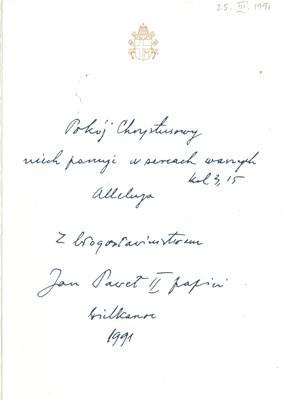 25. III. 1991
Pokój Chrystusowy
niech panuje w sercach waszych
Kol 3, 15
Alleluja
Z błogosławieństwem
Jan Paweł II papież
Wielkanoc
1991